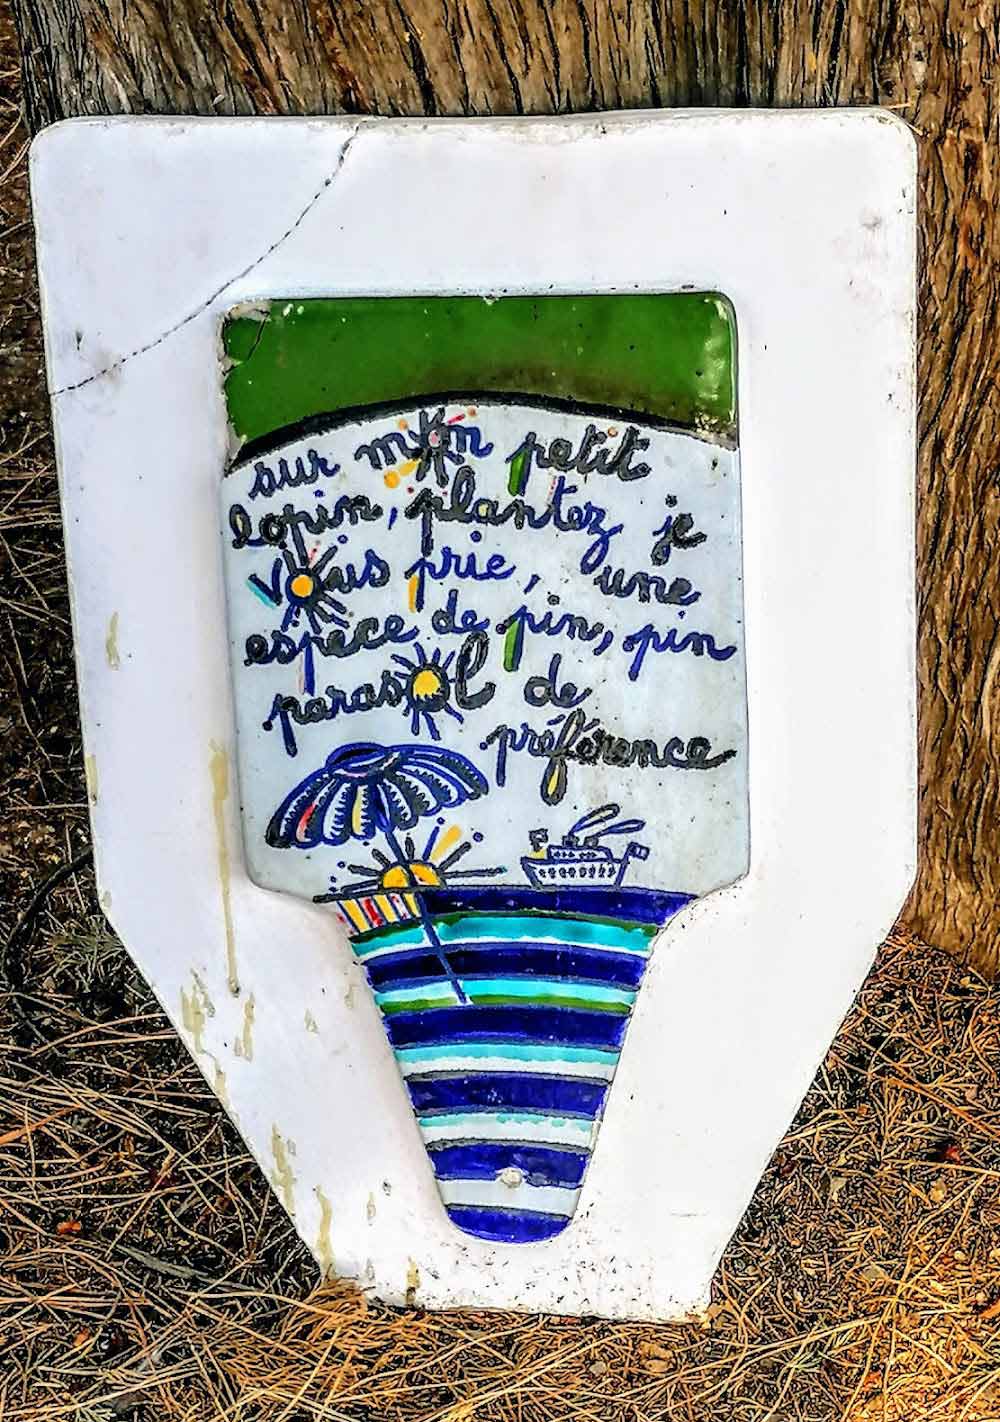 sur mon petit
lopin, plantez je
vous prie, une
espèce de pin, pin
parasol de
préférence